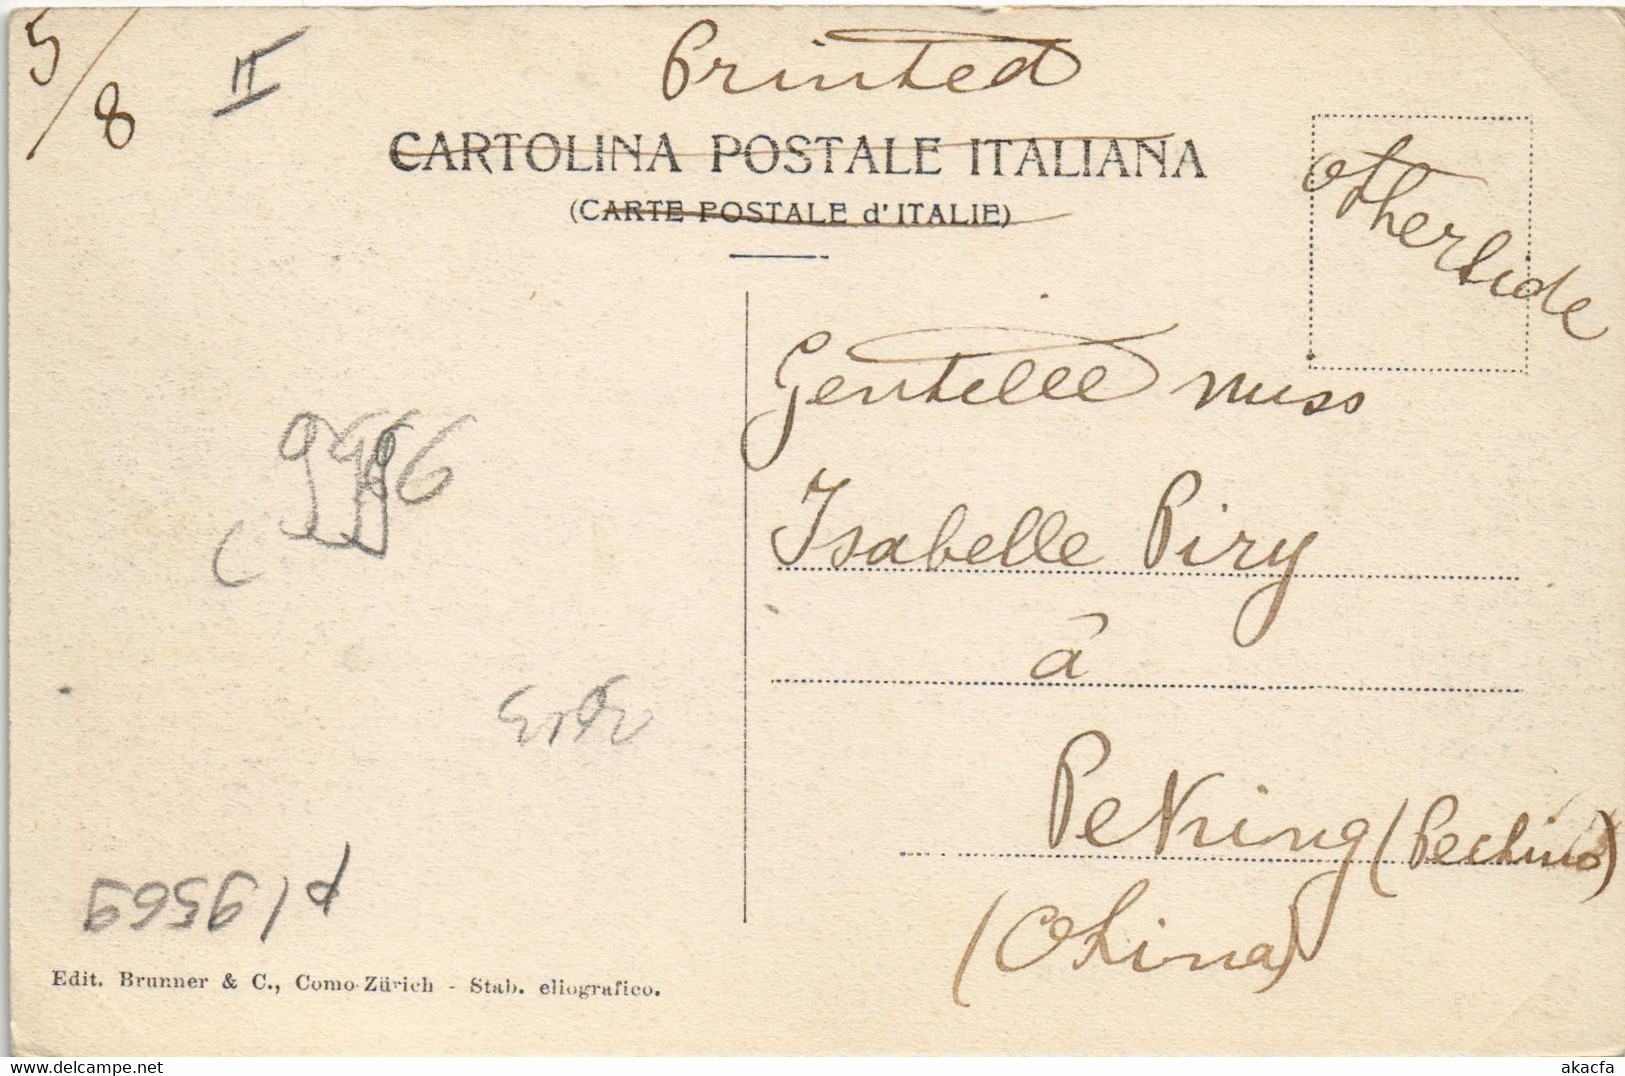 5/8
II
Printed
CARTOLINA POSTALE ITALIANA
(CARTE POSTALE d'ITALIE)
Otherside
Gentille miss
Isabelle Piry
à
Peking (Pechino)
(China)
Edit. Brunner & C., Como-Zürich - Stab. eliografico.
akacfa